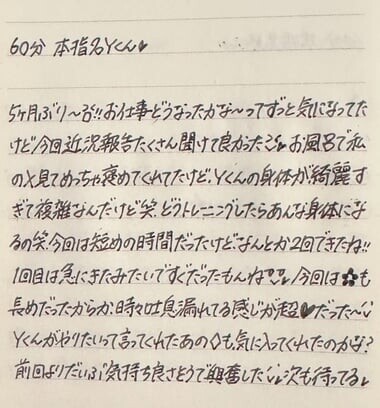 60分 本指名Yくん♥
5ヶ月ぶり〜〜!!お仕事どうなったかな〜ってずっと気になってた
けど今回近況報告たくさん聞けて良かった お風呂で私
の 見てめっちゃ褒めてくれてたけど、Yくんの身体が綺麗す
ぎて複雑なんだけど笑、どうトレーニングしたらあんな身体にな
るの笑、今回は短めの時間だったけど、なんとか2回できたね!!
1回目は急にきたみたいですぐだったもんね 今回は✿も
長めだったからか時々吐息漏れてる感じが超♥だった〜
Yくんがやりたいって言ってくれたあの◇も気に入ってくれたのかな?
前回よりだいぶ気持ち良さそうで興奮した 次も待ってる